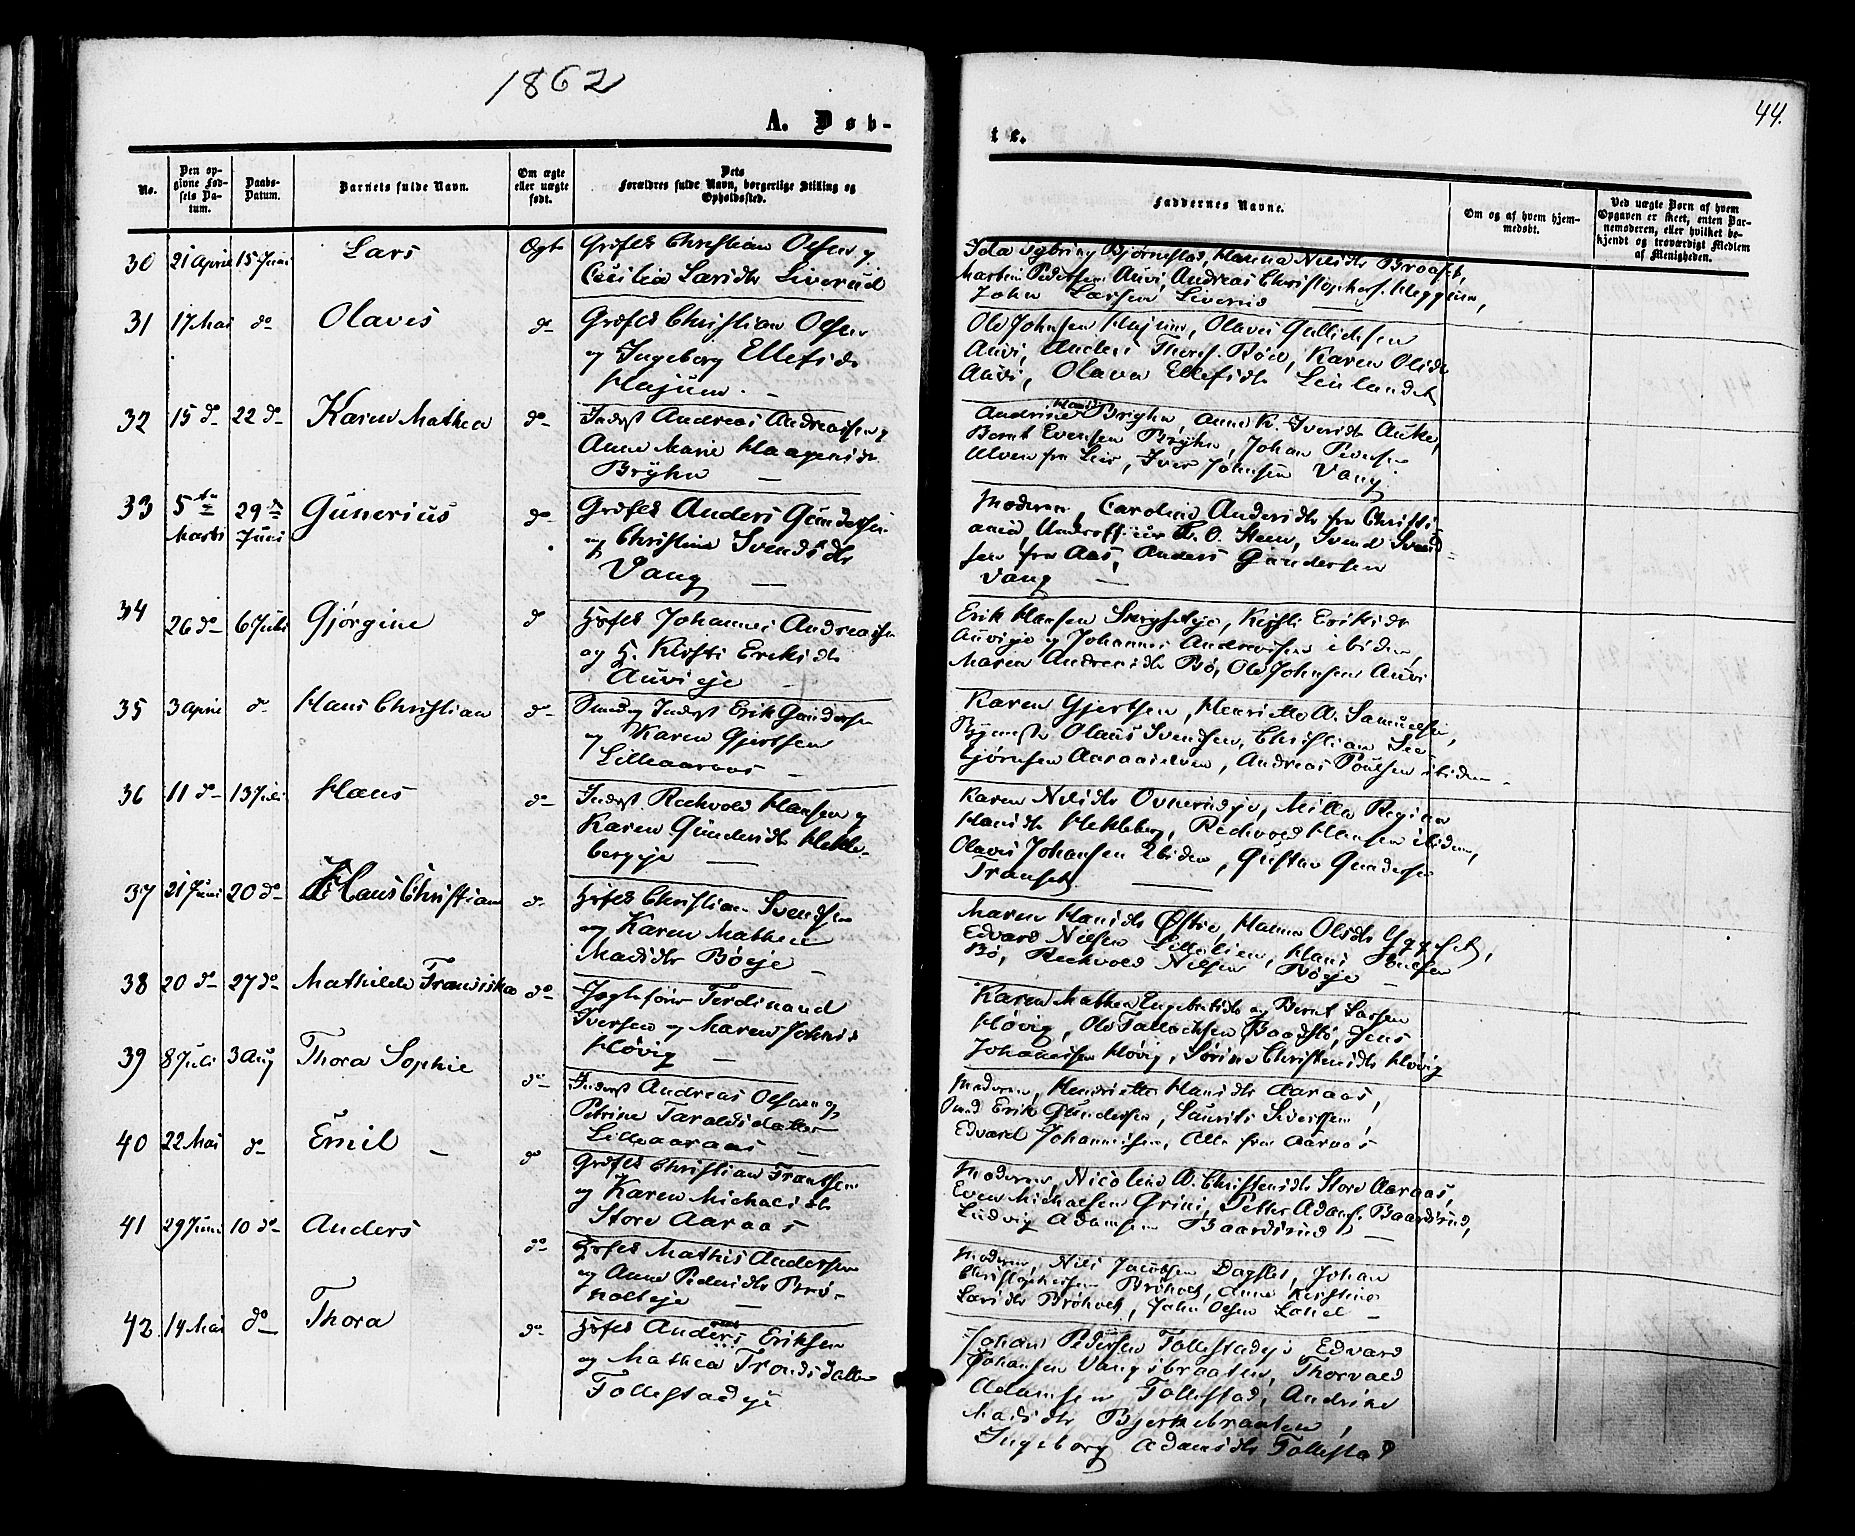 1862
44.
A. Døb-
te.
No.
Den op-
givne Fød-
sels Da-
tum.
Daabs-
Datum.
Barnets fulde Navn.
Om ægte
eller uægte
født.
Dets
Forældres fulde Navn, borgerlige Stilling og
Opholdssted.
Faddernes Navne.
Om og af hvem hjem-
medøbt.
Ved uægte Børn af hvem
Opgaven er skeet, enten Bar-
nemoderen, eller hvilket be-
kjendt og troværdigt Medlem
af Menigheden.
30 21 April 15 Juni Lars Ægte
Christian Olsen og
Cecilia Larsdtr Liverud
Bjørnstad, Hanna Nilsdtr
Martin Pedersen Auvi, Andreas Christophers. Heggum,
John Larsen Liverud
31 17 Mai do Olaves do
Christian Olsen
og Ingeborg Ellefsdr
Hajum. -
Ole Johnsen Hajum, Olaves Gullichsen
Auvi, Anders Thors. Bøe, Karen Olsdr
Auvi, Olava Ellefsdtr Leilandet
32 15 do 22 do Karen Mathea do
Inderst Andreas Andreassen og
Anne Marie Haagensdr
Bryhn -
Andrine Hansdr Bryhn, Anne K. Iversdtr Auke,
Bernt Evensen Bryhn, Johan
Alven fra Lier, Iver Johnsen Vang
33 5te Marts 29de Juni Gunerius do
Anders Gundersen
og Christine Svendsdtr
Vang -
Moderen, Caroline Andersdtr fra Christi-
ania, Underofficier O. Steen, Svend Svend-
sen fra Aas, Anders Gundersen
Vang -
34 26 do 6 Juli Gjørgine do
Johannes Andreassen
og H. Kirsti Eriksdtr
Auvieje -
Erik Hansen Kirsti Eriksdtr
Auvieje og Johannes Andreassen ibidem,
Maren Andreasdtr Bø, Ole Johnsen Auvi
35 3 April do Hans Christian do
Smed og Inderst Erik Gundersen
og Karen Gjertsen
Lilleaaraas -
Karen Gjertsen, Henriette A. Samuelsen,
Olaus Svendsen, Christian
Aaraaselven, Andreas Poulsen ibidem -
36 11 do 13 Juli Hans do
Inderst Reehvold Hansen og
Karen Gundersdtr Hekle-
bergeje -
Karen Nilsdtr Ovnerudeje, Milla Regine
Hansdtr Hekleberg, Reehvold Hansen ibidem,
Olaves Johansen ibidem, Gustav Gundersen
Transet. -
37 21 Juni 20 do Hans Christian do
Christian Svendsen
og Karen Mathea
Madsdtr Bøeje -
Maren Hansdtr Østbø, Hanna Olsdtr Yggeset,
Edvard Nilsen Lillelien, Hans
Bø, Reehvold Nilsen Bøeje -
38 20 do 27 do Mathilde Fransiska do
Jagtfører Ferdinand
Iversen og Maren Johnsdr
Høvig -
Karen Mathea Engebretsdtr og Bernt Larsen
Høvig, Ole Tallachsen Baadstø, Jens
Johannesen Høvig, Sørine Christensdtr Høvig
39 8 Juli 3 Aug Thora Sophie do
Inderst Andreas Olsen og
Petrine Taraldsdatter
Lilleaaraas -
Moderen, Henriette Hansdtr Aaraas,
Smed Erik Gundersen, Laurits Siverssen,
Edvard Johannesen, Alle fra Aaraas
40 22 Mai do Emil - do
Christian Frantsen
og Karen Michaelsdtr
Store Aaraas
Moderen, Nicoline A. Christensdtr Store Aaraas,
Even Michaelsen Grini, Petter Adams. Baardsrud,
Ludvig Adamsen Baardsrud -
41 29 Juni 10 do Anders do
Mathis Andersen
og Anne Pedersdtr Brø-
holteje -
Moderen, Nils Jacobsen Dagslet, Johan
Christophersen Brøholt, Anne Kirstine
Larsdtr Brøholt, John Olsen Lahel -
42. 14 Mai do Thora do
Anders Eriksen
og Mathea Trondsdatter
Follestadeje
Johan Pedersen Follestadeje, Edvard
Johansen Vangsbraaten, Thorvald
Adamsen Follestad, Andrine
Madsdtr Bjerkebraaten,
Ingeborg Adamsdtr Follestad